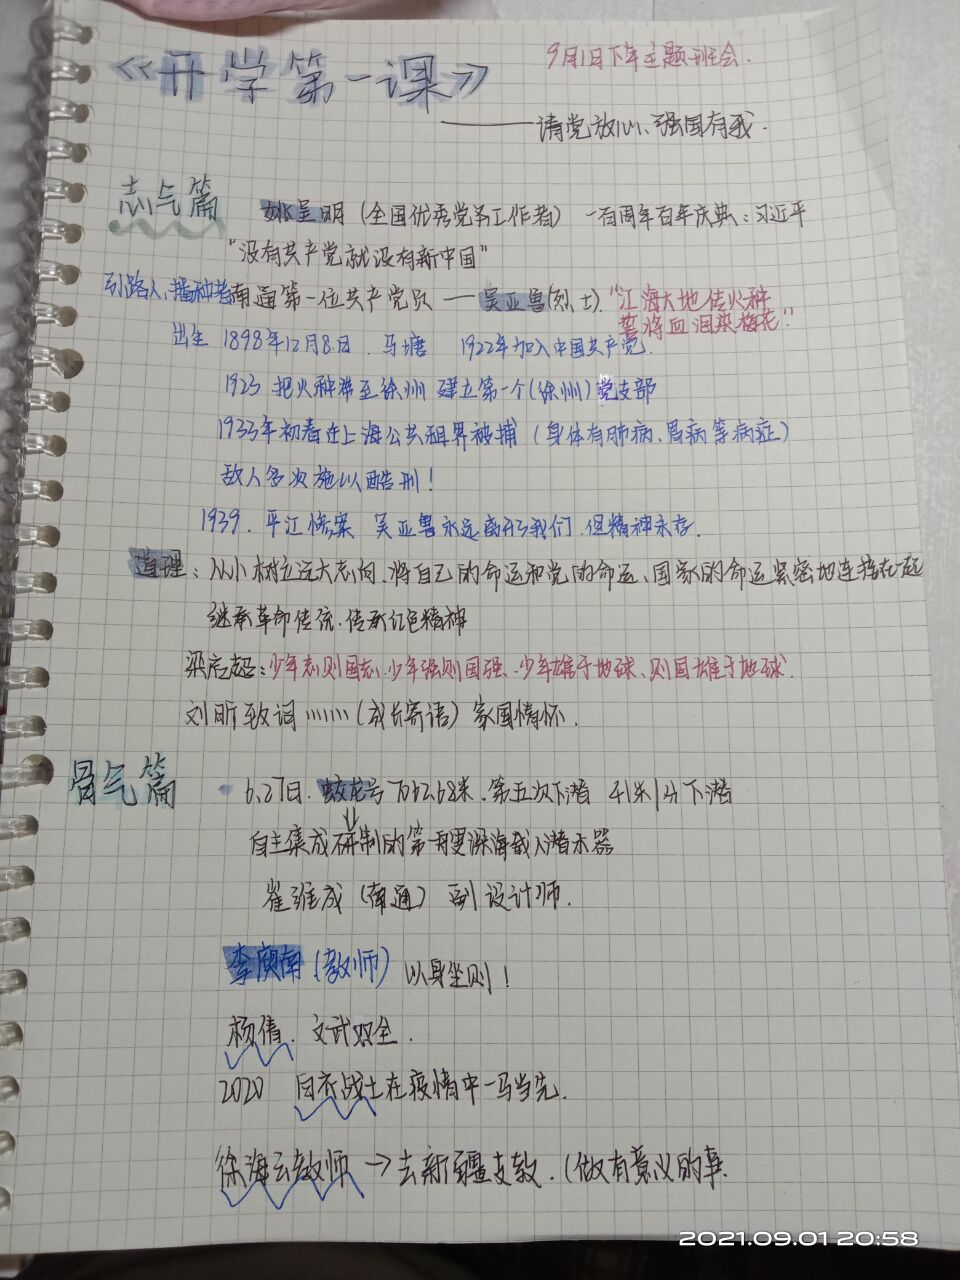 《开学第一课》
9月1日下午主题班会.
——请党放心、强国有我.
志气篇
姚呈明（全国优秀党务工作者） 一百周年百年庆典：习近平
"没有共产党就没有新中国"
引路人、播种者 南通第一位共产党员 — 吴亚鲁(烈士). "江海大地传火种
誓将血泪染梅花."
出生 1898年12月8日. 马塘 1922年加入中国共产党.
1923 把火种带至徐州 建立第一个(徐州)党支部
1933年初春在上海公共租界被捕（身体有肺病、胃病等病症）
敌人多次施以酷刑！
1939. 平江惨案 吴亚鲁永远离开了我们. 但精神永存.
道理：从小树立远大志向、将自己的命运和党的命运、国家的命运紧密地连接在一起
继承革命传统、传承红色精神
梁启超：少年志则国志、少年强则国强、少年雄于地球、则国雄于地球.
刘昕致词……（成长寄语）家国情怀.
骨气篇
6.27日. 蛟龙号7062.68米. 第五次下潜 41米1分 下潜
自主集成研制的第一艘深海载人潜水器
崔维成（南通） 副设计师.
李庾南（教师） 以身坐则！
杨倩. 文武双全.
2020 白衣战士在疫情中一马当先.
徐海云教师 →去新疆支教.（做有意义的事
2021.09.01 20:58